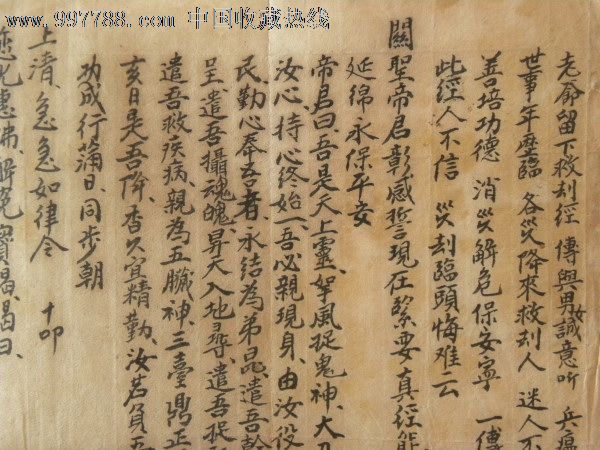 www.997788.com 中国收藏热线
老爺留下救刼經 傳與男女誠意听 兵瘟
世事年歷臨 各災降來救刼人 迷人不
善培功德 消災解危保安寧 一傳
此經人不信 災刼臨頭悔难云
關聖帝君彰感誓現在緊要真經能
延綿永保平安
帝君曰吾是天上靈、拏風捉鬼神、大
汝心、持心終始、吾必親現身、由汝役
民勤心奉吾者、永結為弟昆、遣吾
呈、遣吾攝魂魄、昇天入地尋、遣吾捉
遣吾救疾病、親為五臟神、三臺鼎正
亥日是吾降、香火宜精勤、汝若負
功成行蒲日、同步朝
上清、急急如律令 十叩
光惠佛、解冤寶偈、偈曰、